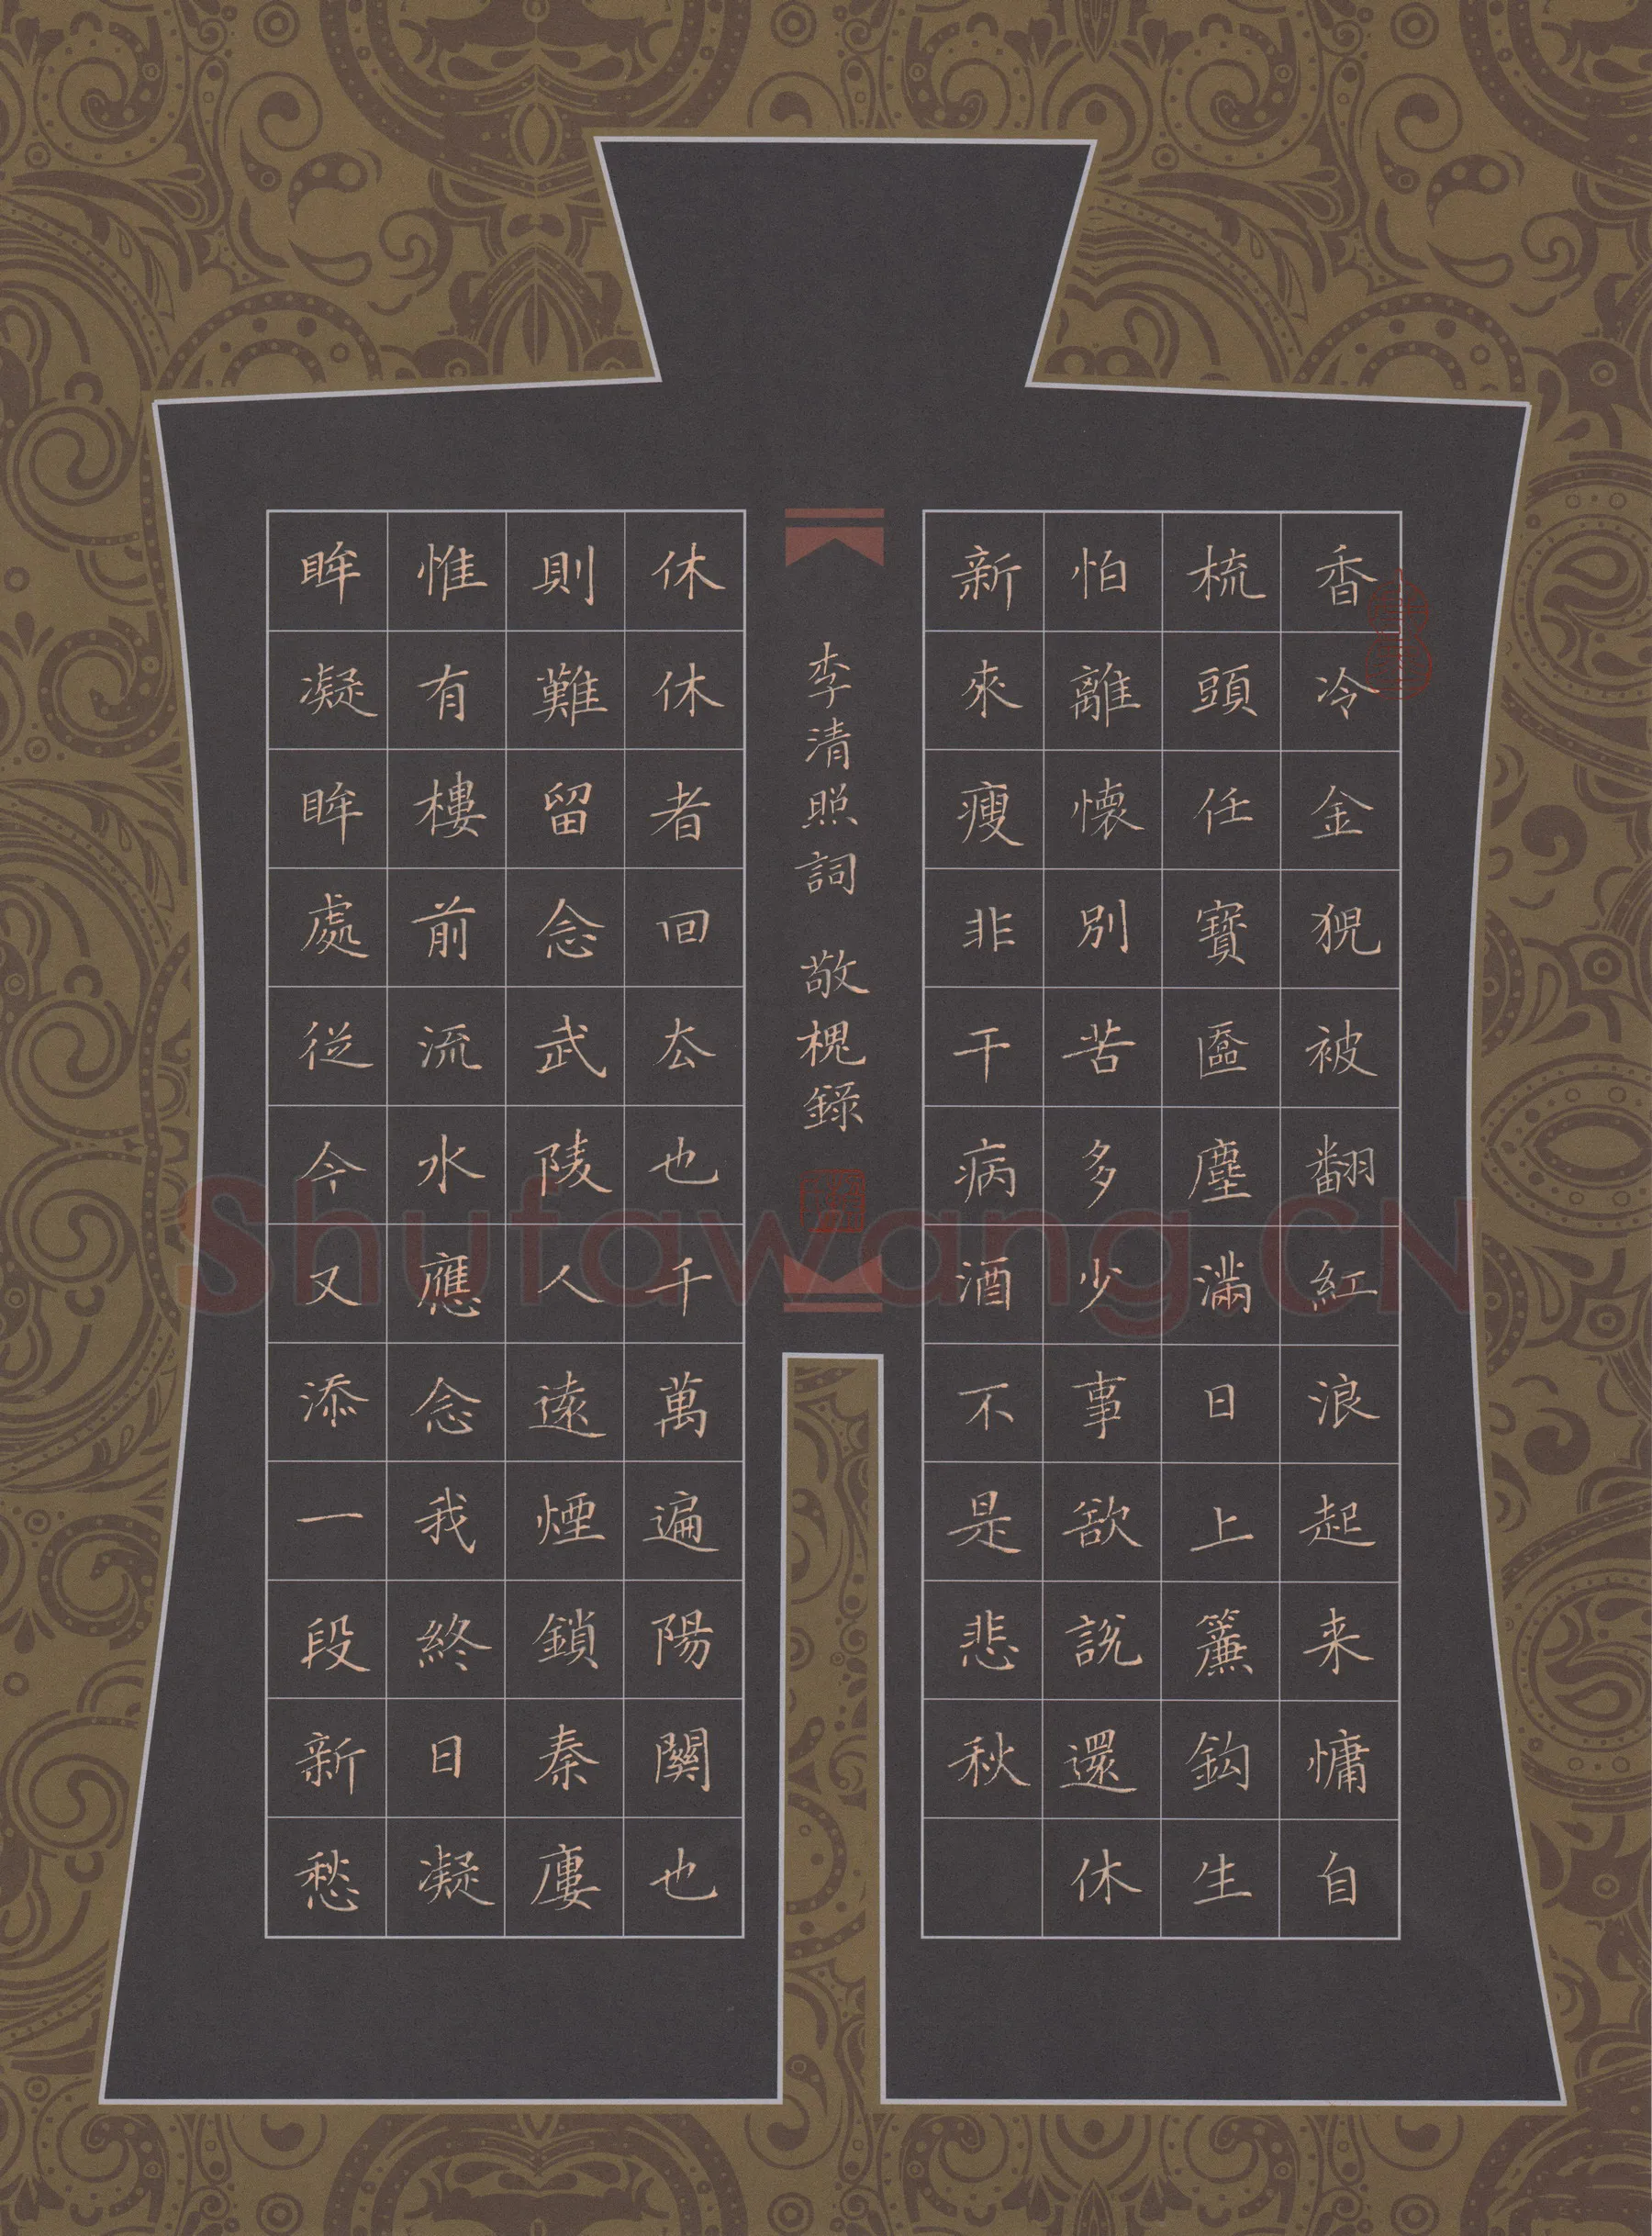 香冷金猊被翻紅浪起来慵自
梳頭任寶匳塵滿日上簾鈎生
怕離懷別苦多少事欲說還休
新來瘦非干病酒不是悲秋
李清照詞 敬槐錄
休休者回厺也千萬遍陽關也
則難留念武陵人遠煙鎖秦廔
惟有樓前流水應念我終日凝
眸凝眸處從今又添一段新愁
Shufawang.CN